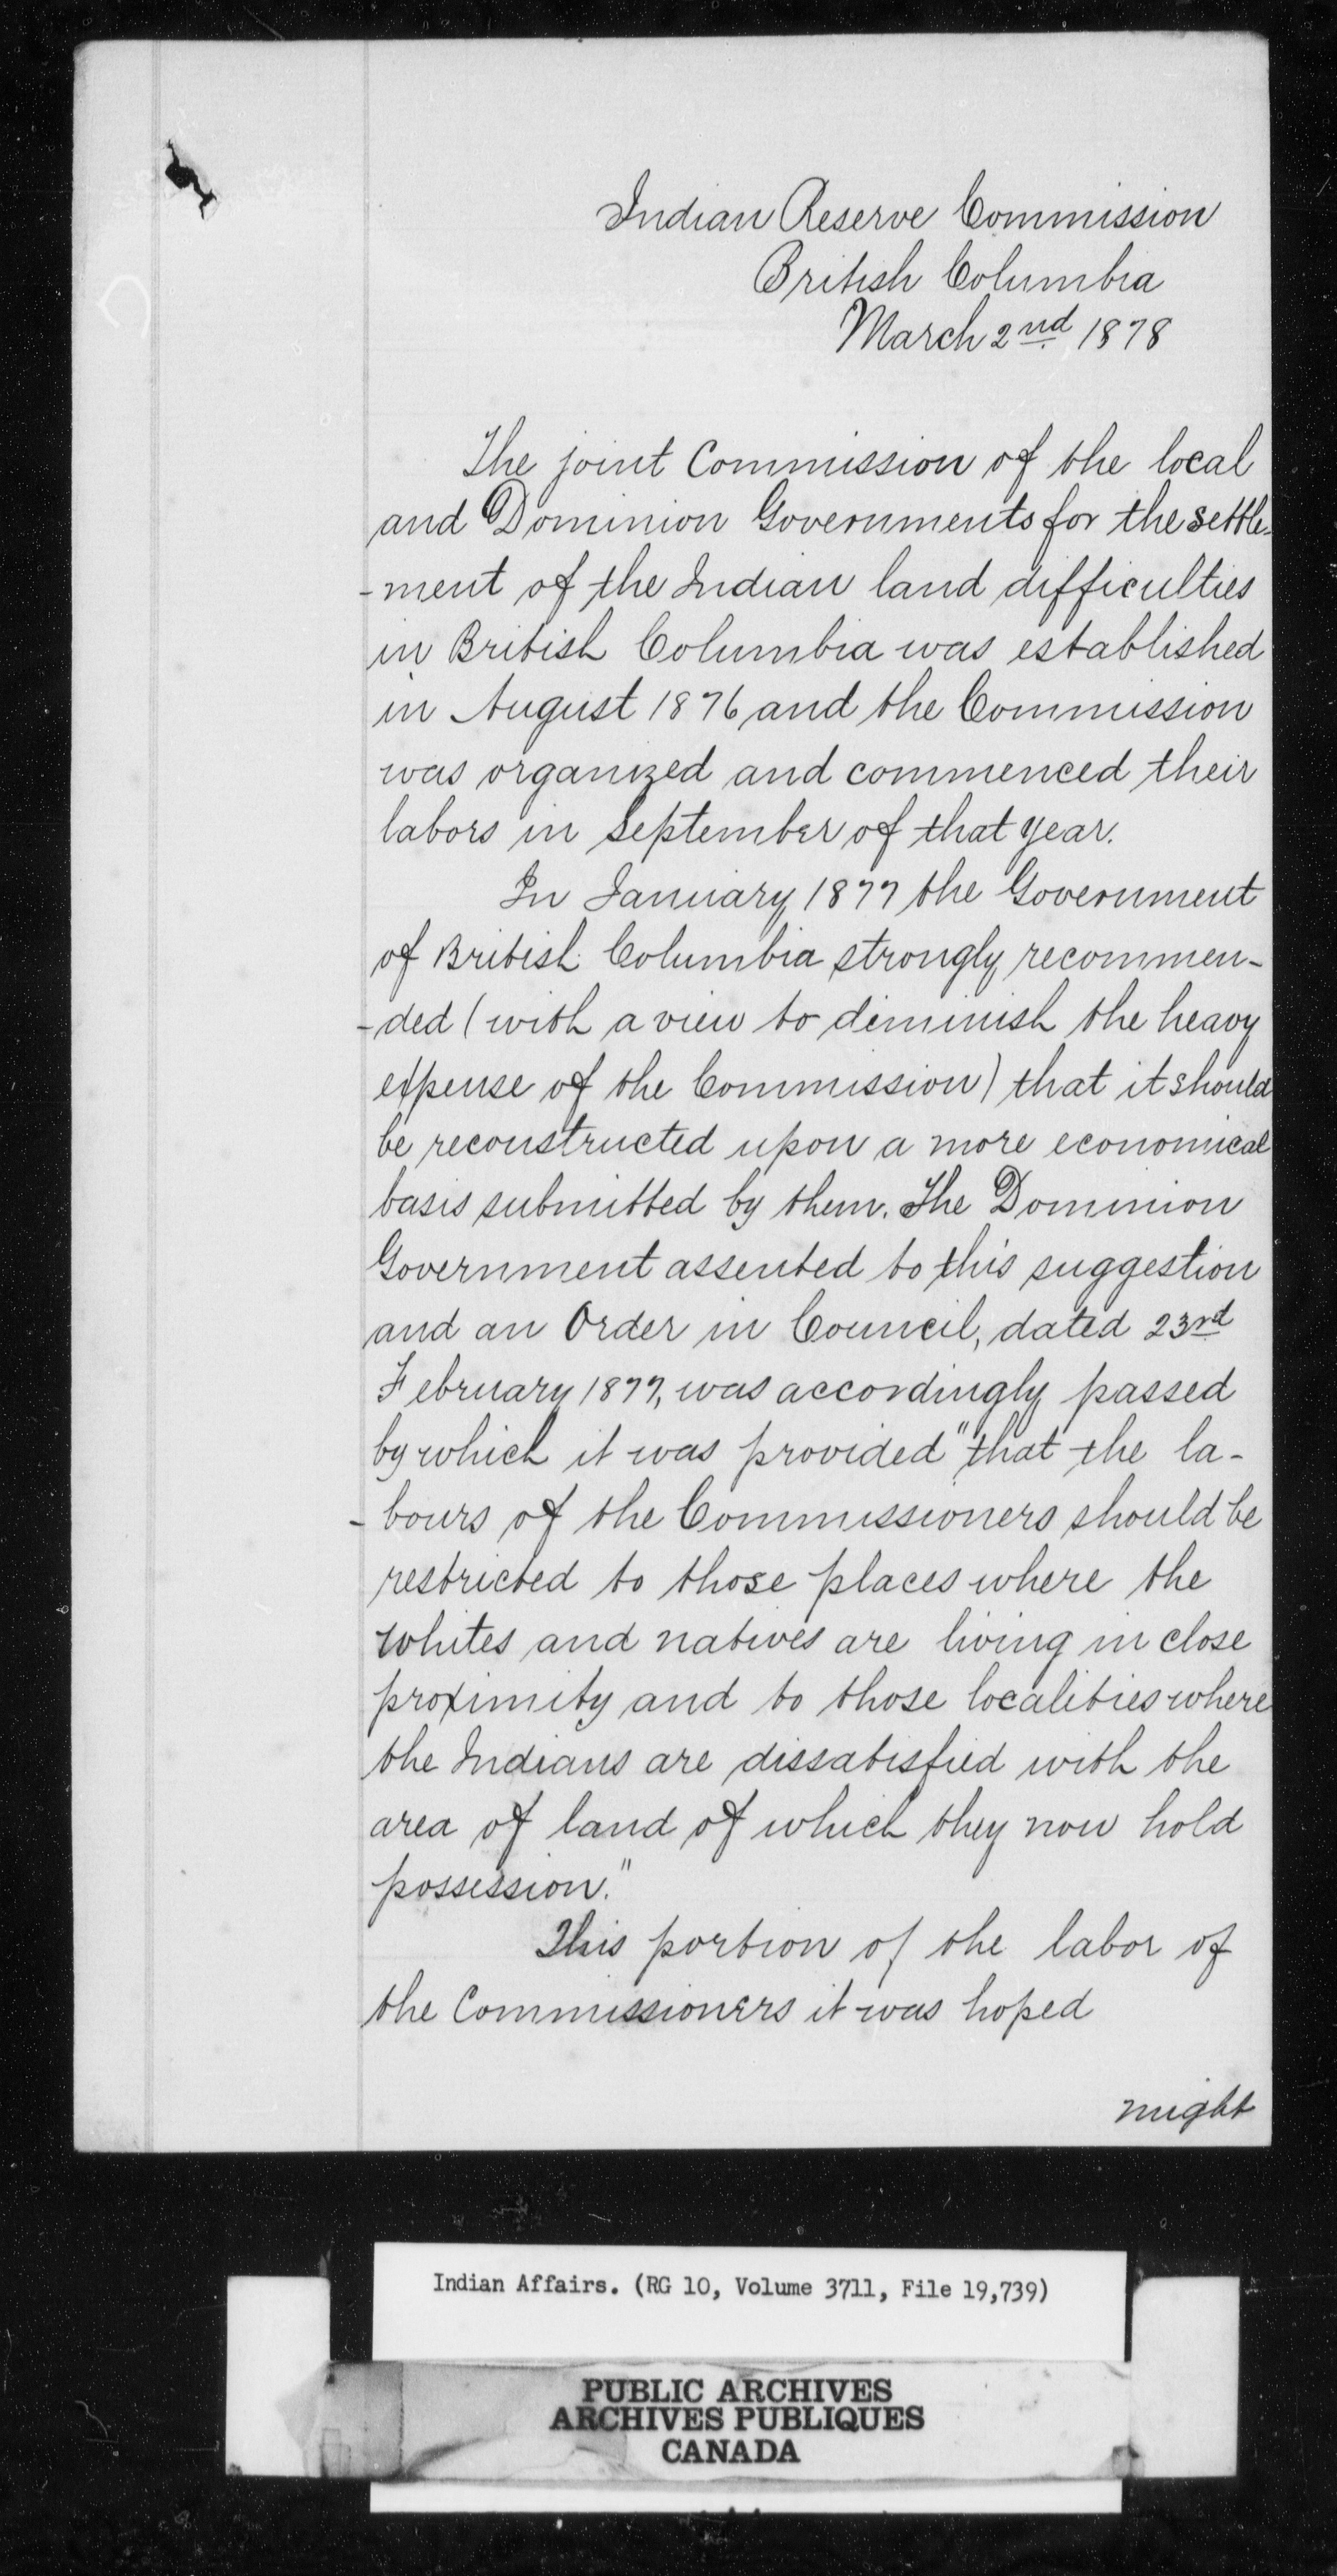 Indian Reserve Commission
British Columbia
March 2nd 1878
The joint Commission of the local
and Dominion Governments for the settle-
-ment of the Indian land difficulties
in British Columbia was established
in August 1876 and the Commission
was organized and commenced their
labors in September of that year.
In January 1877 the Government
of British Columbia strongly recommen-
-ded (with a view to diminish the heavy
expense of the Commission) that it should
be reconstructed upon a more economical
basis submitted by them. The Dominion
Government assented to this suggestion
and an Order in Council, dated 23rd
February 1877, was accordingly passed
by which it was provided "that the la-
-bours of the Commissioners should be
restricted to those places where the
whites and natives are living in close
proximity and to those localities where
the Indians are dissatisfied with the
area of land of which they now hold
possession."
This portion of the labor of
the Commissioners it was hoped
might
Indian Affairs. (RG 10, Volume 3711, File 19,739)
PUBLIC ARCHIVES
ARCHIVES PUBLIQUES
CANADA